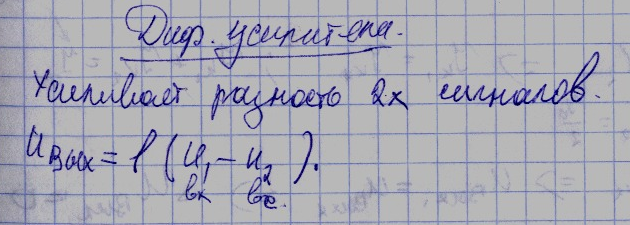 Диф. усилитель.
Усиливает разность 2х сигналов.
Uвых = f (U₁вх − U₂вх).